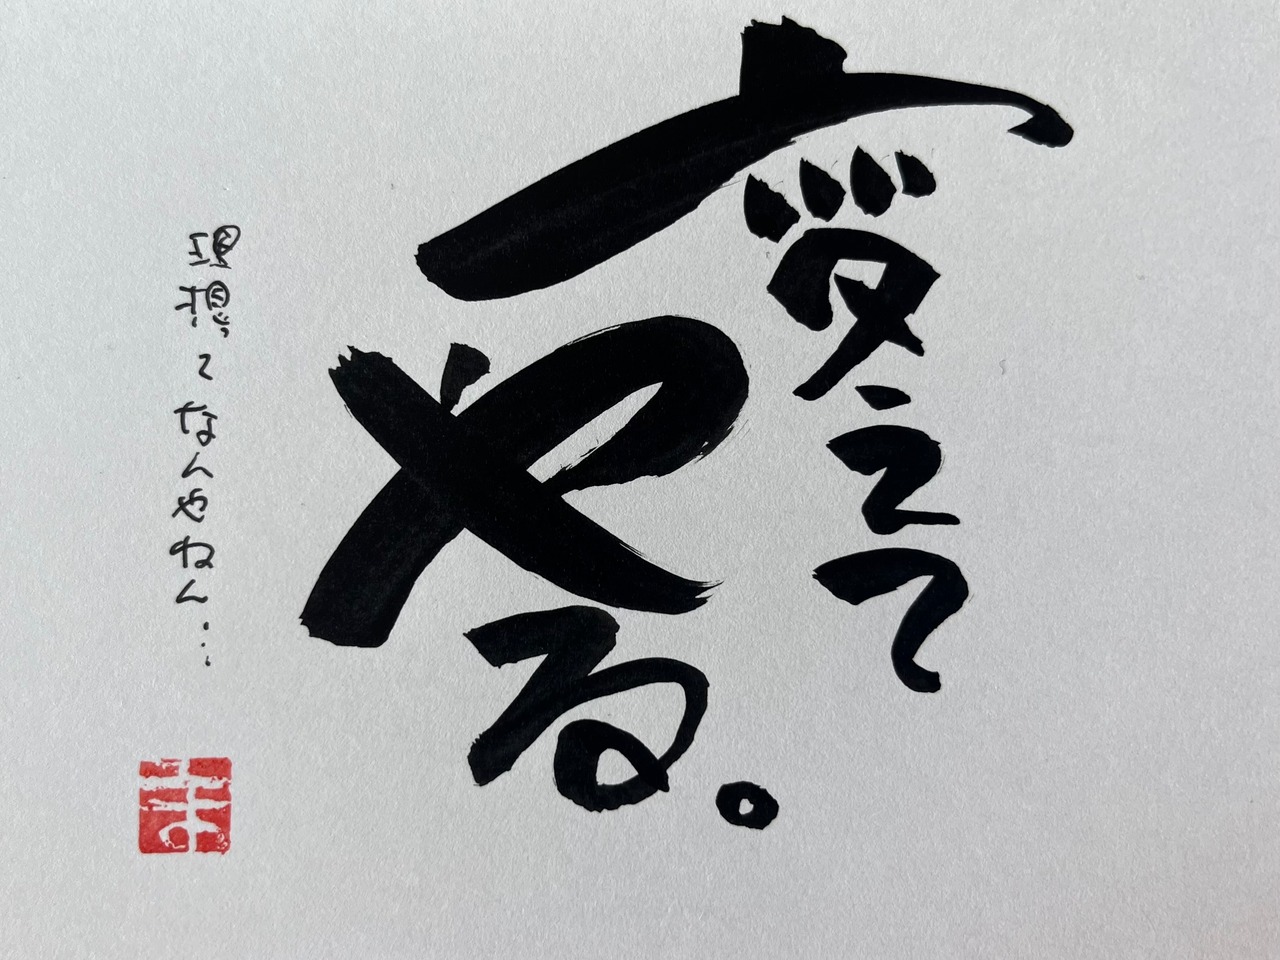 変えて
やる。
理想てなんやねん…